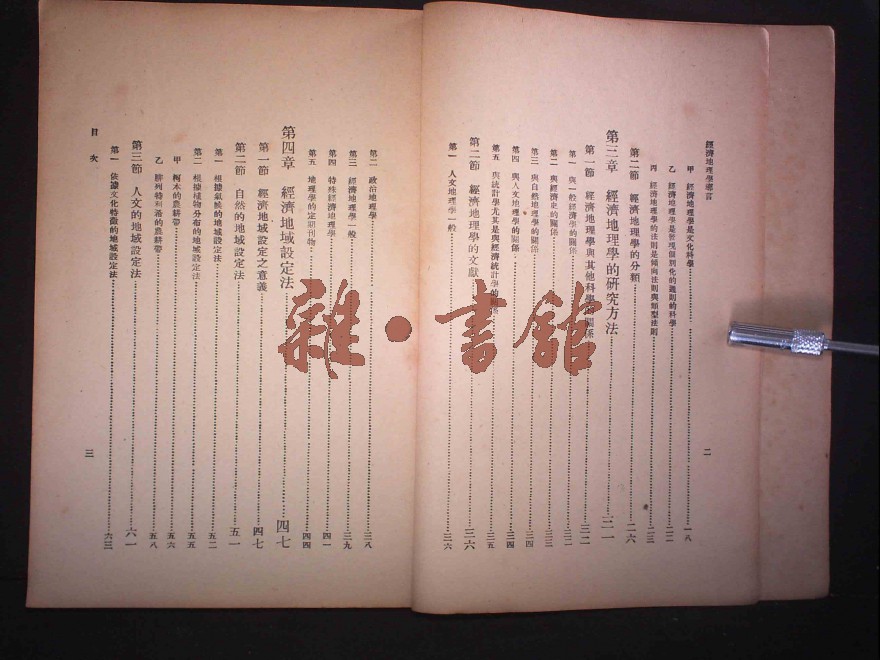 經濟地理學導言
甲 經濟地理學是文化科學 一八
乙 經濟地理學是發現個別化的通則的科學 二二
丙 經濟地理學的法則是傾向法則與類型法則 二三
第二節 經濟地理學的分類 二六
第三章 經濟地理學的研究方法 三一
第一節 經濟地理學與其他科學的關係 三二
第一 與一般經濟學的關係 三二
第二 與經濟史的關係 三三
第三 與自然地理學的關係 三四
第四 與人文地理學的關係 三四
第五 與統計學尤其是與經濟統計學的關係 三五
第二節 經濟地理學的文獻 三六
第一 人文地理學一般 三六
二
第二 政治地理學 三八
第三 經濟地理學一般 三九
第四 特殊經濟地理學 四一
第五 地理學的定期刊物 四四
第四章 經濟地域設定法 四七
第一節 經濟地域設定之意義 四七
第二節 自然的地域設定法 五一
第一 根據氣候的地域設定法 五二
第二 根據植物分布的地域設定法 五五
甲 柯本的農耕帶 五六
乙 勝列特利希的農耕帶 五八
第三節 人文的地域設定法 六一
第一 依據文化特徵的地域設定法 六三
目次
三
雜·書館